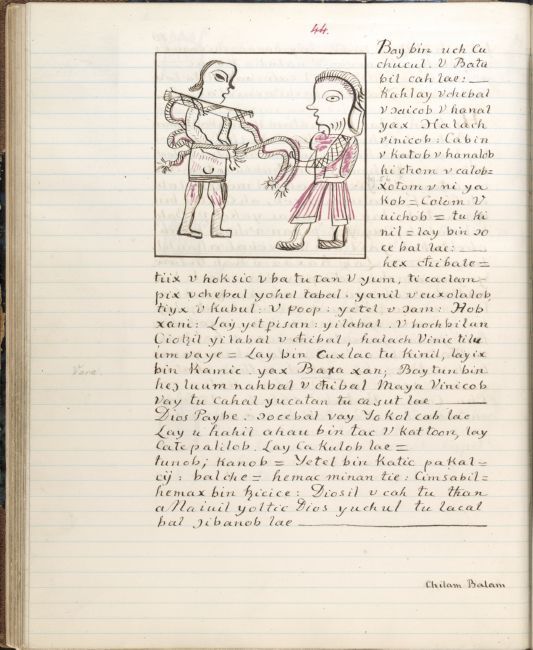 44.
Bay bin uch Cu
chucul. V Batu
bil cah lae:
Kahlay vchebal
v ɔaicob V hanal
yax Halach
vinicob: Cabin
v katob v hanalob
hi chom v calob=
xotom v ni ya
Kob= Colom V
uichob = tu ki
nil = lay bin ɔo
ce bal lae:
hex chibale=
tiix v hoksic v ba tu tan V yum, ti caclam
pix vchebal yohel tabal. yanil v cuxolalob
tiyx v kubul: V poop: yetel v ɔam: Hob
xani: Lay yet pisan: yilabal. V hochbilun
yilabal v chibal, halach Vinic tilu
um vaye = Lay bin Cuxlac tu kinil, layix
bin Kamic yax Bara xan; Bay tun bin
heɔ luum nahbal v chibal Maya Vinicob
vay tu cahal yucatan tu ca sut lae
Dios Paybe. ɔocebal vay Yokol cab lae
Lay u hahil ahau bin tac V kat toon, lay
Ca te palilob. Lay Ca Kulob lae =
tunob; Kanob = Yetel bin Katic pakal=
cij: balche = hemac minan tie: Cimsabil=
hemax bin ɔicice: Diosil v cah tu than
yoltic Dios yuchul tu lacal
bal ɔibanob lae
Chilam Balam